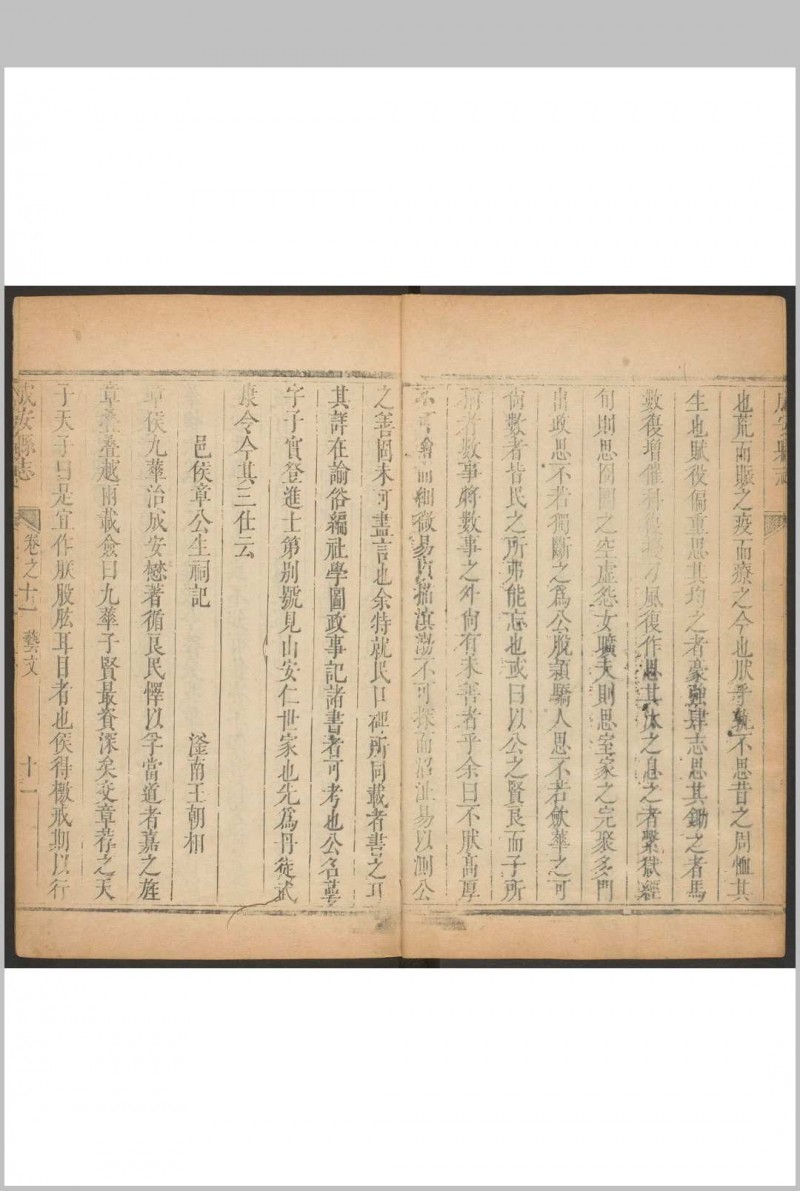 成安縣志
也荒而賑之疫而療之今也厭乎孰不思昔之周恤其
生也賦役偏重思其均之者豪強肆志思其鋤之者馬
數復增催科風復作思其休之息之者繫獄經
旬則思囹圄之空虛怨女曠夫則思室家之完聚多門
出政思不若獨斷之為公脫潁驕人思不若斂華之可
尚數者皆民之所弗能忘也或曰以公之賢良而子所
稱者數事將數事之外尚有未善者乎余曰不厭高厚
不可繪而細微易指溟渤不可探而沼沚易以測公
之善固未可盡言也余特就民口碑所同載者書之耳
其詳在諭俗編社學圖政事記諸書者可考也公名
字子實登進士第別號見山安仁世家也先為丹徒武
康令今其三仕云
邑侯章公生祠記
滏南王朝相
章侯九華治成安懋著循良民懌以孚當道者嘉之旌
章疊疊越兩載僉曰九華子賢最資深矣交章荐之天
子天子曰是宜作朕股肱耳目者也侯得檄戒期以行
成安縣志
卷之十一
藝文
十一